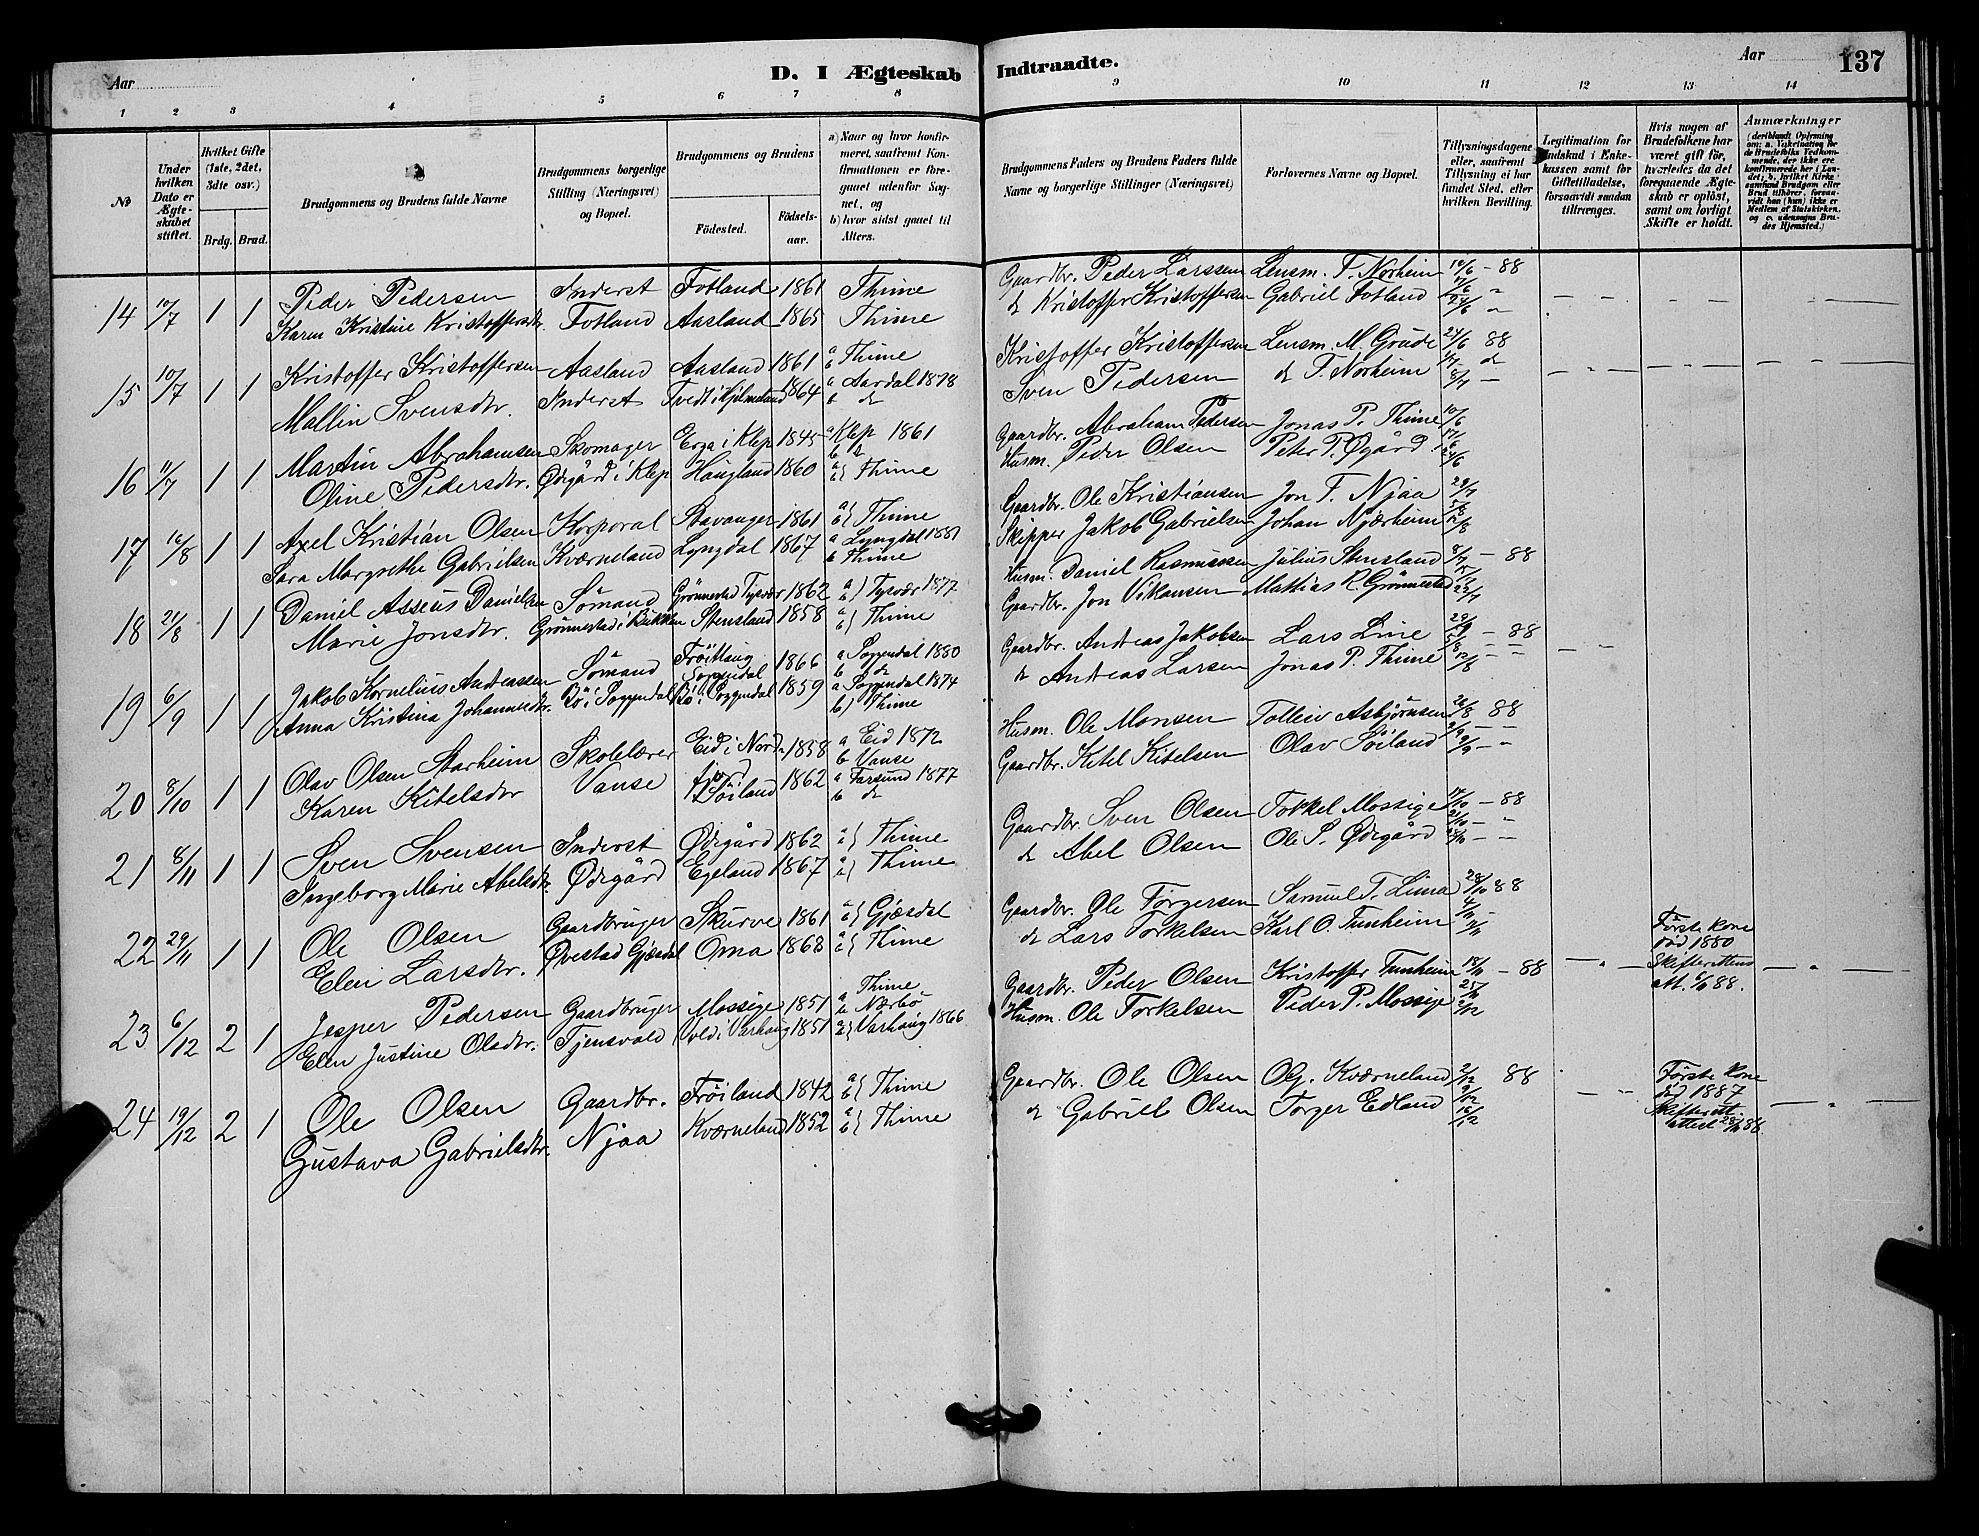 Aar
D. I Ægteskab Indtraadte.
Aar
137
1 2 3 4 5 6 7 8 9 10 11 12 13 14
No
Under hvilken Dato er Ægteskabet stiftet.
Hvilket Gifte (1ste, 2det, 3dte osv.)
Brdg. Brud.
Brudgommens og Brudens fulde Navne
Brudgommens borgerlige Stilling (Næringsvei) og Bopæl.
Brudgommens og Brudens
Födested.
Födselsaar.
a) Naar og hvor konfirmeret, saafremt Konfirmationen er foregaaet udenfor Sognet, og
b) hvor sidst gaaet til Alters.
Brudgommens Faders og Brudens Faders fulde Navne og borgerlige Stillinger (Næringsvei)
Forlovernes Navne og Bopæl.
Tillysningsdagene eller, saafremt Tillysning ei har fundet Sted, efter hvilken Bevilling.
Legitimation for Indskud i Enkekassen samt for Giftetilladelse, forsaavidt saadan tiltrænges.
Hvis nogen af Brudefolkene har været gift för, hvorledes da det foregaaende Ægteskab er oplöst, samt om lovligt Skifte er holdt.
Anmærkninger
14 10/7 1 1 Peder Pedersen Inderst Fotland 1861 Thime Gaardbr. Peder Larssen Lensm. T. Norheim 10/6 - 88
Karen Kristine Kristoffersdtr. Fotland Aasland 1865 Thime do Kristoffer Kristoffersen Gabriel Fotland 17/6 " 24/6 "
15 10/7 1 1 Kristoffer Kristoffersen Aasland Aasland 1861 a b Thime Kristoffer Kristoffersen Lensm. M. Grude 24/6 88
Mallin Svensdtr. Inderst Tvedt i Hjelmeland 1864 a Aardal 1878 b do Sven Pedersen do T. Norheim 1/7 do 8/7 -
16 11/7 1 1 Martin Abrahamsen Skomager Erga i Klep 1845 a Klep 1861 b do Gaardbr. Abraham Pedersen Jonas P. Thime 10/6
Oline Pedersdtr. Ødigård i Klep Haugland 1860 a b Thime Husm. Peder Olsen Peter P. Øgård 17/6 24/6
17 16/8 1 1 Axel Kristian Olsen Korporal Stavanger 1861 a b Thime Gaardbr. Ole Kristiansen Jon T. Njaa 29/7
Sara Margrethe Gabrielsen Kværneland Lyngdal 1867 a Lyngdal 1881 b Thime Skipper Jakob Gabrielsen Johan Njærheim 5/8 12/8
18 21/8 1 1 Daniel Asseus Danielsen Sömand Grönnestad Tysvær 1862 a b Tysvær 1877 Husm. Daniel Rasmussen Julius Stensland 8/7 - 88
Marie Jonsdtr. Grönnestad i Bukken Stensland 1858 a b Thime Gaardbr. Jon Vikansen Mathias R. Grönnestad 15/7 22/7
19 6/9 1 1 Jakob Kornelius Andreassen Sömand Fröitlaug Soggendal 1866 a Soggendal 1880 b do Gaardbr. Andreas Jakobsen Lars Line 29/7 - 88
Anna Kristina Johannesdtr. Bö i Soggendal Bö i Soggendal 1859 a Soggendal 1874 b) Thime do Andreas Larsen Jonas P. Thime 5/8 12/8
20 8/10 1 1 Olav Olsen Starheim Skolelærer Eid i Nordfjord 1858 a Eid 1872 b Vanse Husm. Ole Monsen Tolleiv Asbjörnsen 26/8 88
Karen Kitelsdtr Vanse Söiland 1862 a Farsund 1877 b do Gaardbr. Kitel Kitelsen Olav Söiland 2/9 9/9 - "
21 8/11 1 1 Sven Svensen Inderst Ødigård 1862 a b Thime Gaardbr. Sven Olsen Torkel Mossige 14/10 - 88
Ingeborg Marie Abelsdtr. Ødigård Egeland 1867 a b Thime do Abel Olsen Ole S. Ødigård 21/10 - " 28/10 - -
22 29/11 1 1 Ole Olsen Gaardbruger Skurve 1861 a b Gjæsdal Gaardbr. Ole Torgersen Samuel T. Lima 28/10 88
Elen Larsdtr. Øvestad Gjæsdal Oma 1868 a b Thime do Lars Torkelsen Karl O. Tunheim 4/11 11/11
23 6/12 2 1 Jesper Pedersen Gaardbruger Mossige 1851 a Thime b Nærbö Gaardbr. Peder Olsen Kristoffer Tunheim 18/11 - 88 Förste kone död 1880 Skifterettens att. 6/11 88.
Elen Justine Olsdtr. Tjensvold Vold i Varhaug 1851 a b Varhaug 1866 Husm. Ole Torkelsen Peder P. Mossige 25/11 2/12
24 19/12 2 1 Ole Olsen Gaardbr. Fröiland 1842 a b Thime Gaardbr. Ole Olsen Obj. Kværneland 2/12 88 Förste kone död 1887 Skifterett attest 29/11 88.
Gustava Gabrielsdtr. Njaa Kværneland 1852 a b Thime do Gabriel Olsen Torger Edland 9/12 16/12